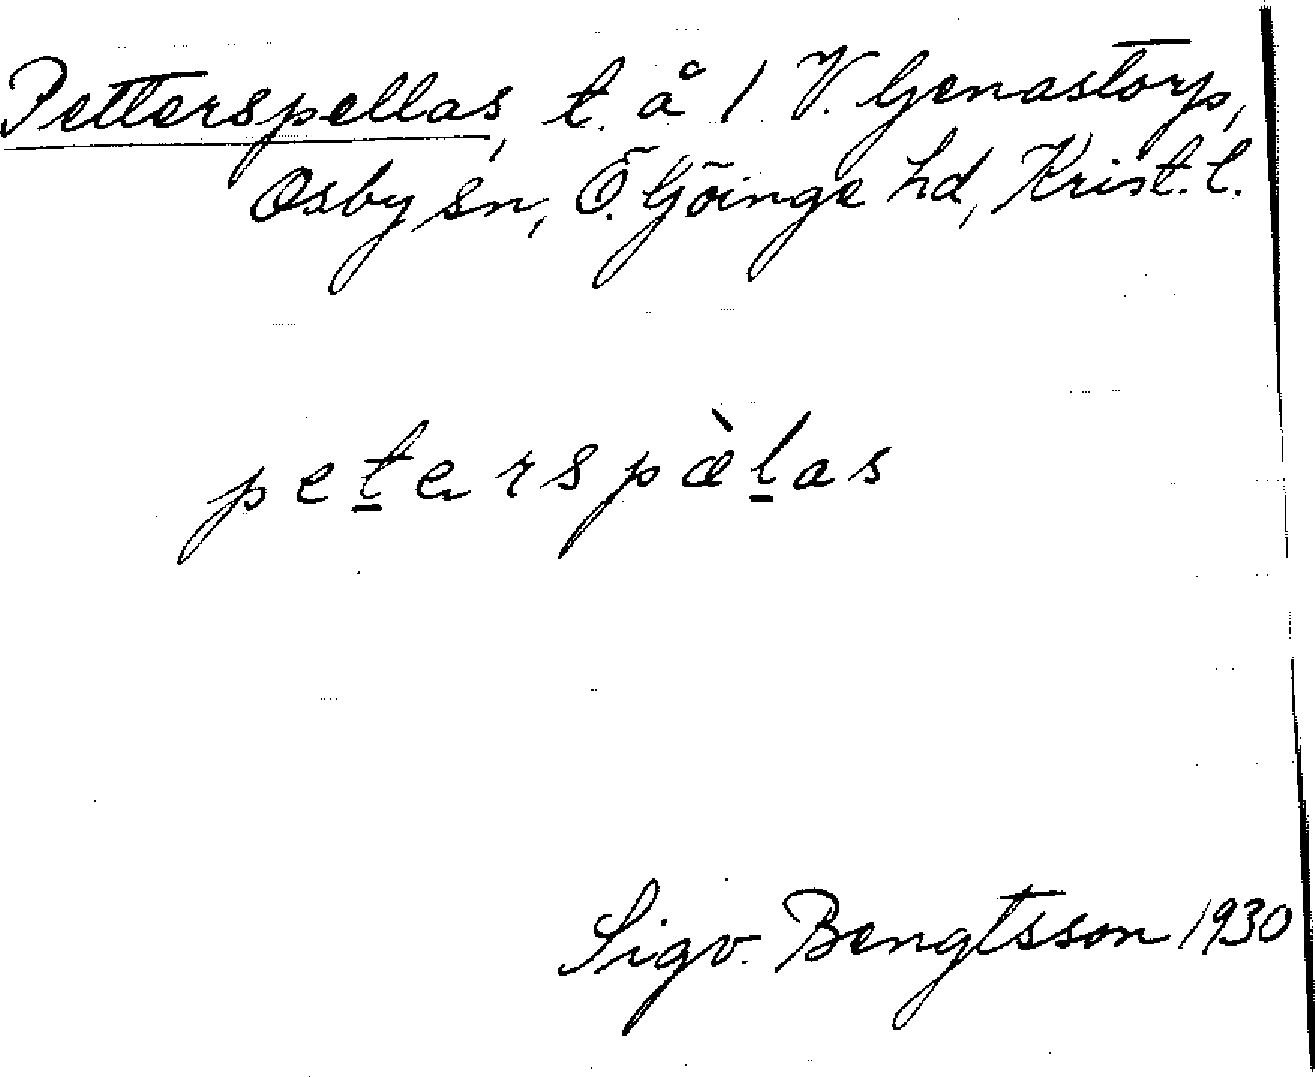 Petterspellas, t. å 1 V. Genastorp,
Osby sn, Ö. Göinge hd, Krist. l.
peterspæ̀las
Sigv. Bengtsson 1930